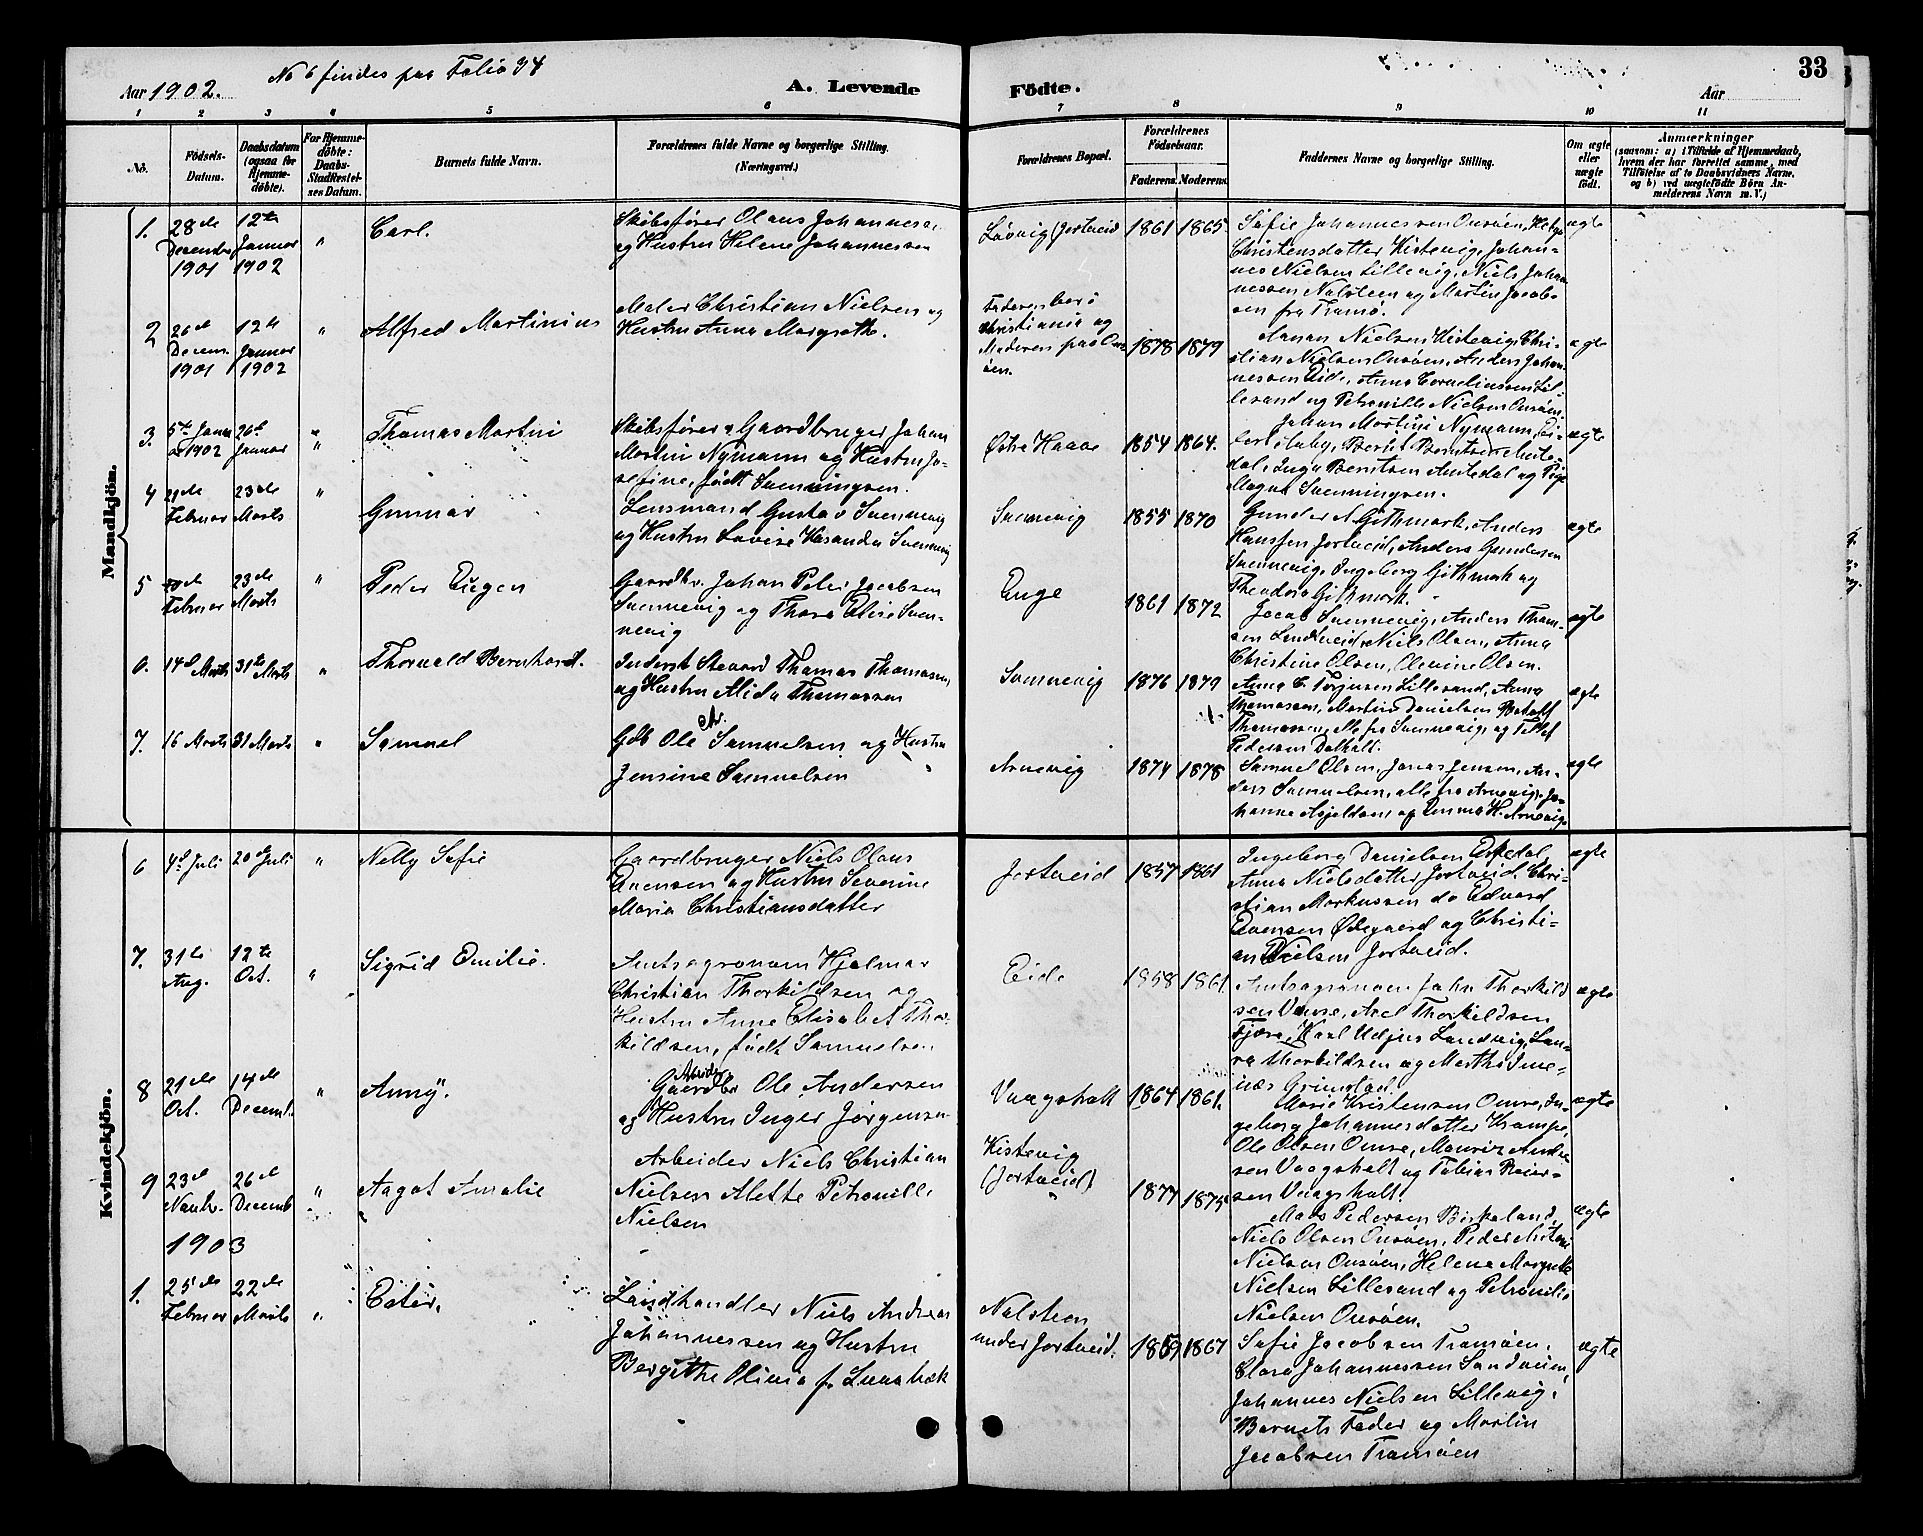 No 6 findes paa Folio 34
33
Aar 1902.
A. Levende
Födte.
Aar
1 2 3 4 5 6 7 8 9 10 11
No.
Födsels-
Datum.
Daabsdatum
(ogsaa for
Hjemme-
döbte).
For Hjemme-
döbte:
Daabs-
Stadfæstel-
ses Datum.
Barnets fulde Navn.
Forældrenes fulde Navne og borgerlige Stilling.
(Næringsvei.)
Forældrenes Bopæl.
Forældrenes
Födselsaar.
Faderens. Moderens.
Faddernes Navne og borgerlige Stilling.
Om ægte
eller
uægte
födt.
Anmærkninger
(saasom: a) i Tilfælde af Hjemmedaab,
hvem der har forrettet samme, med
Tilföielse af to Daabsvidners Navne,
og b) ved uægtefödte Börn An-
melderens Navn m. V.)
Mandkjön.
1. 28de December 1901
12te Januar 1902
"
Carl.
Skibsfører Olaus Johannessen
og Hustru Helene Johannessen
Løvvig (Jortveid
1861 1865
Sofie Johannessen Onsöen, Helga
Christensdatter Kistevig, Johan-
nes Nielsen Lillevig, Niels Johan
nessen Nalsteen og Martin Jacob-
sen fra Tramö.
ægte
2 26de Decem. 1901
12te Januar 1902
"
Alfred Martinius
Maler Christian Nielsen og
Hustru Anna Margrethe.
Faderen bor i
Christiania og
Moderen paa Ons
öen.
1878 1879
Hanan Nielsen Kistevig, Chri-
stian Nielsen Onsöen, Anders Johan-
nessen Eide, Anna Corneliussen Lil-
lesand og Petronille Nielsen Onsöen.
ægte
3. 5te Janu
ar 1902
26de Januar
"
Thomas Martini
Skibsfører & Gaardbruger Johan
Martini Nymann og Hustru Jo-
sefine, født Svenningsen.
Østre Haave
1854 1864.
Johan Martini Nymann, Ei-
lert Aaby, Bernt Berntsen Amte-
dal, Inga Berntsen Amtedal og Pige
Magna Svenningsen.
ægte
4 21de Februar
23de Marts
"
Gunnar
Lensmand Gustav Svennevig
og Hustru Lovise Kasanda Svennevig
Svennevig
1855 1870
Gunder A. Githmark, Anders
Hanssen Jortveid, Anders Gundersen
Svennevig, Ingeborg Githmark og
Theodora Githmark.
ægte
5 Februar
23de Marts
"
Peder Eugen
Gaardbr. Johan Peter Jacobsen
Svennevig og Thora Elise Sven-
nevig
Enge
1861 1872
Jacob Svennevig, Anders Thom-
sen Lindtveid, Niels Olsen, Anna
Christine Olsen, Olevine Olsen.
ægte
6. 14de Marts
31te Marts
"
Thorvald Bernhard.
Inderst Steward Thomas Thomassen
og Hustru Alida Thomassen
Svennevig
1876 1879
Anna C. Torjusen Lillesand, Anna
Thomassen, Martin Danielsen Botolf
Thomassen, alle fra Svennevig, og Tellef
Pedersen Dalholt.
ægte
7. 16 Marts
31 Marts
"
Samuel
Gdb Ole Ar. Samuelsen og Hustru
Jensine Samuelsen
Arnevig
1874 1878
Samuel Olsen, Jonas Jensen, An-
ders Samuelsen, alle fra Arnevig, Jo-
hanne Asjeldsen og Emma H. Arnevig.
ægte
Kvindekjön.
6 4de Juli
20de Juli
"
Nelly Sofie
Gaardbruger Niels Olaus
Evensen og Hustru Severine
Maria Christiansdatter
Jortveid
1857 1861
Ingeborg Danielsen Eskedal,
Anna Nielsdatter Jortveid, Chri-
stian Markussen do Edvard
Evensen Ødegaard og Christi-
an Nielsen Jortveid.
ægte
7. 31te Aug.
12te Oct.
"
Sigrid Emilie.
Amtsagronom Hjalmar
Christian Thorkildsen og
Hustru Anne Elisabet Thor-
kildsen, født Samuelsen.
Eide
1858 1861
Amtsagronom John Thorkild
sen Omre, Axel Thorkildsen
Fjære, Karl Udjus Landvig, Lau-
ra Thorkildsen og Martha Ime-
næs Grimstad.
ægte
8 21de Oct.
14de Decemb.
"
Anny.
Arbeider
Gaardbr Ole Andersen
og Hustru Inger Jørgensen
Vaagsholt
1864 1861.
Marie Kristensen Omre, In-
geborg Johannesdatter Krampe,
Ole Olsen Omre, Mauritz Andre
sen Vaagsholt og Tobias Reier-
sen Vaagsholt.
ægte
9 23de Novbr.
26de Decemb
"
Aagot Amalie
Arbeider Niels Christian
Nielsen Alette Petronille
Nielsen
Kistevig
(Jortveid)
1877 1875
Mads Pedersen Birkeland,
Niels Olsen Onsöen, Peder Antoni
Nielsen Onsöen, Helene Margrethe
Nielsen Lillesand og Petronille
Nielsen Onsöen.
ægte
1903
1. 25de Februar
22de Marts
"
Ester.
Landhandler Niels Andreas
Johannessen og Hustru
Bergithe Olivia f. Lunebæk
Nalsteen
under Jortveid.
1859 1867
Sofie Jacobsen Tramöen,
Clara Johannessen Sandveien,
Johannes Nielsen Lillevig,
Barnets Fader og Martin
Jacobsen Tramöen
ægte